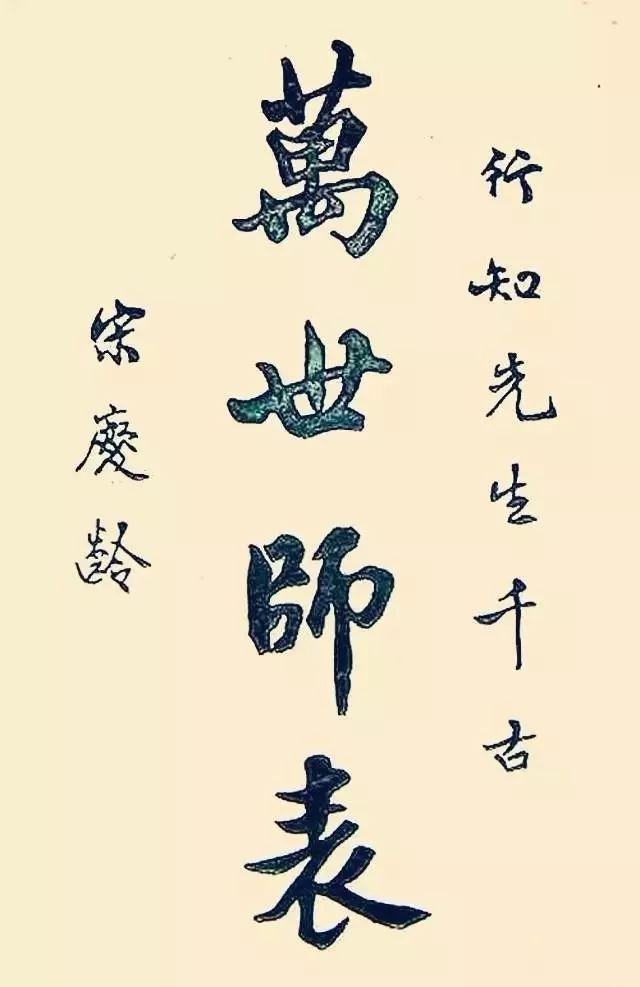 行知先生千古
萬世師表
宋慶龄